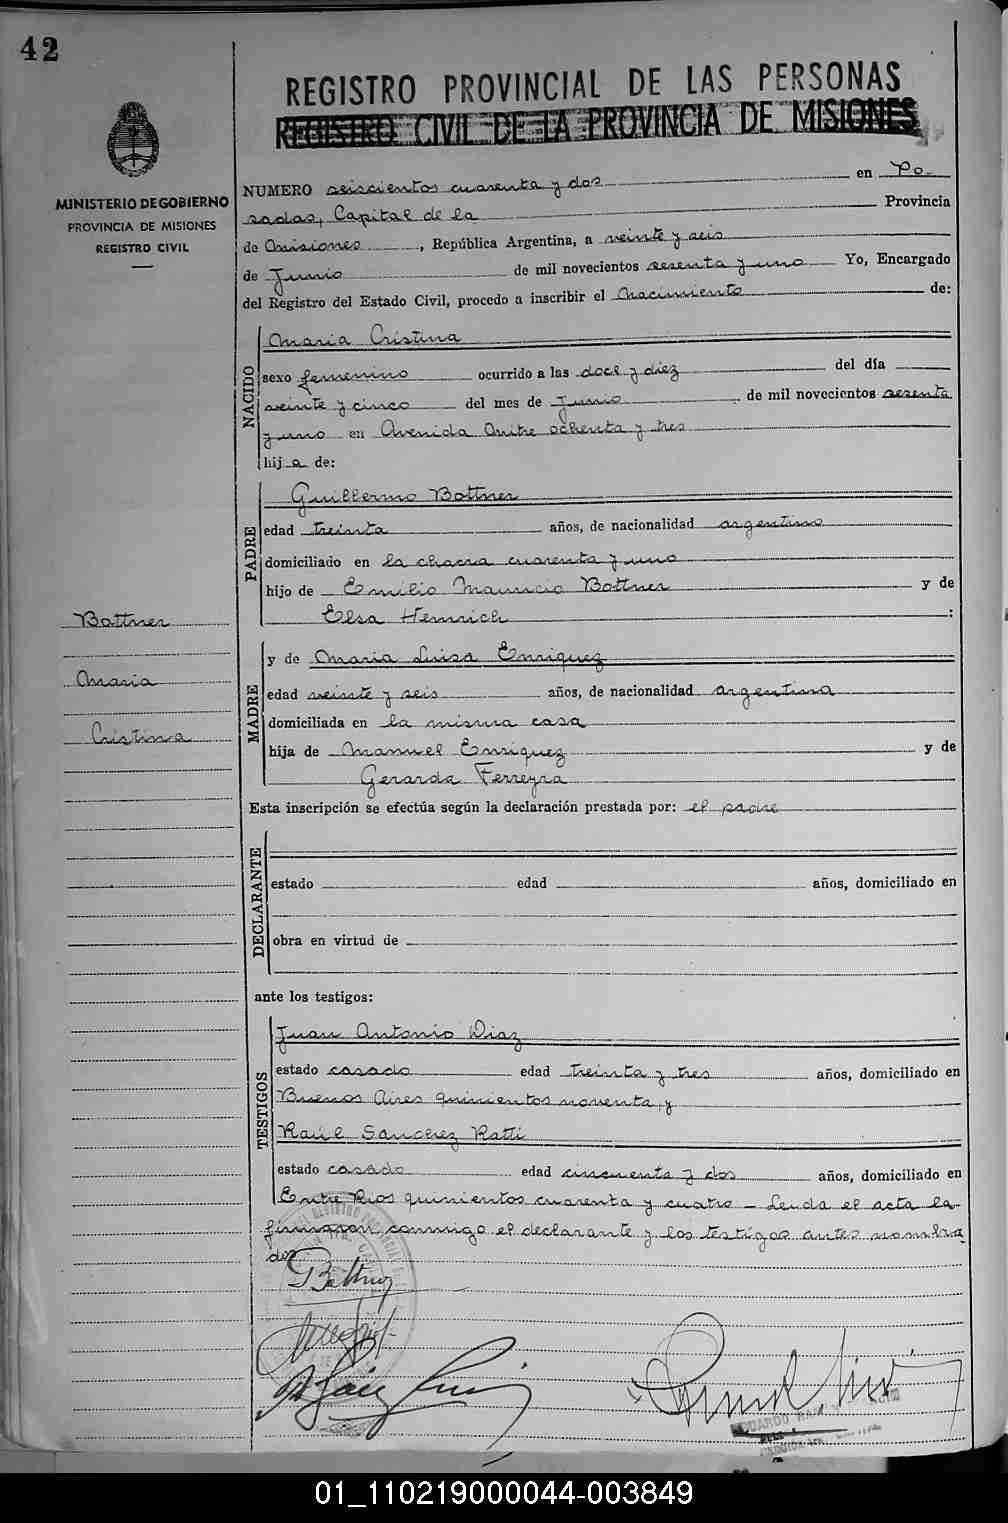 42
REGISTRO PROVINCIAL DE LAS PERSONAS
REGISTRO CIVIL DE LA PROVINCIA DE MISIONES
MINISTERIO DE GOBIERNO
PROVINCIA DE MISIONES
REGISTRO CIVIL
NUMERO seiscientos cuarenta y dos en Po
sadas, Capital de la Provincia
de Misiones, República Argentina, a veinte y seis
de Junio de mil novecientos sesenta y uno Yo, Encargado
del Registro del Estado Civil, procedo a inscribir el Nacimiento de:
NACIDO
Maria Cristina
sexo femenino ocurrido a las doce y diez del día
veinte y cinco del mes de Junio de mil novecientos sesenta
y uno en Avenida Mitre ochenta y tres
hija de:
PADRE
Guillermo Bottner
edad treinta años, de nacionalidad argentino
domiciliado en la chacra cuarenta y uno
hijo de Emilio Mauricio Bottner y de
Elsa Heinrich :
Bottner
Maria
Cristina
MADRE
y de Maria Luisa Enriquez
edad veinte y seis años, de nacionalidad argentina
domiciliada en la misma casa
hija de Manuel Enriquez y de
Gerarda Ferreyra
Esta inscripción se efectúa según la declaración prestada por: el padre
DECLARANTE
estado edad años, domiciliado en
obra en virtud de
ante los testigos:
TESTIGOS
Juan Antonio Diaz
estado casado edad treinta y tres años, domiciliado en
Buenos Aires quinientos noventa, y
Raúl Sanchez Ratti
estado casado edad cincuenta y dos años, domiciliado en
Entre Rios quinientos cuarenta y cuatro - Leida el acta la
firmaron conmigo el declarante y los testigos antes nombra
dos
Bottner
01_110219000044-003849